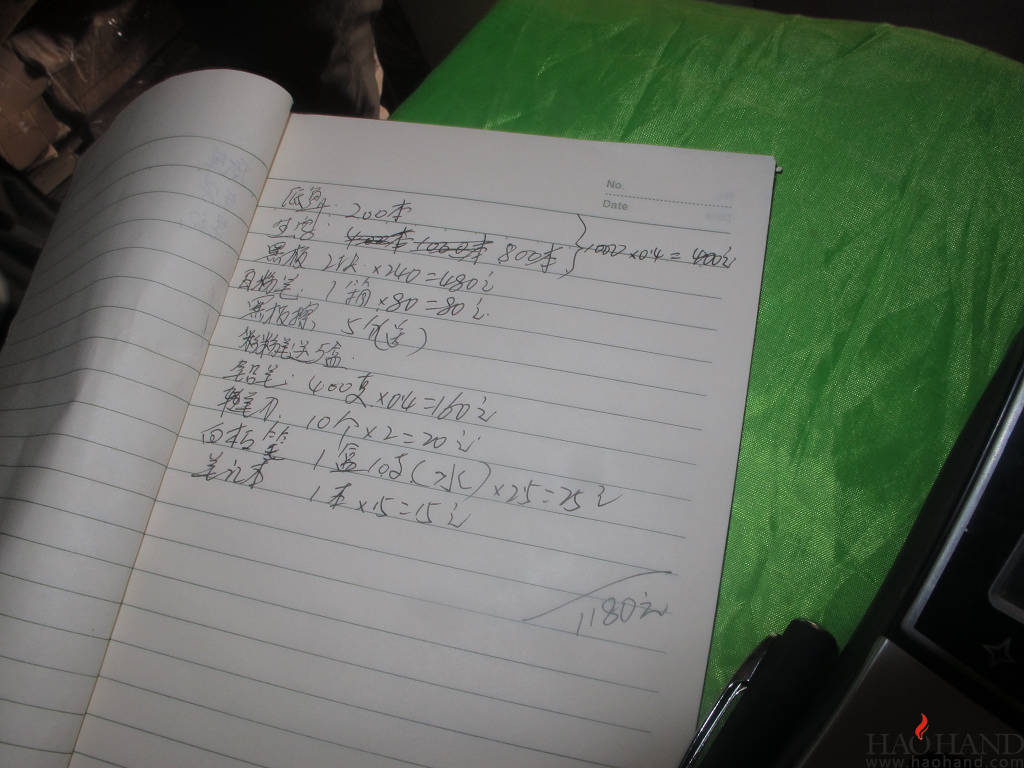 No.
Date
200本
800本 } 1000 × 0.4 = 400元
黑板 2块 × 240 = 480元
白粉笔: 1箱 × 80 = 80元
黑板擦 5个(送)
彩粉笔送5盒
铅笔: 400支 × 0.4 = 160元
卷笔刀. 10个 × 2 = 20元
白板笔 1盒10支(水) × 25 = 25元
笔记本 1本 × 15 = 15元
1180元
HAOHAND
www.haohand.com